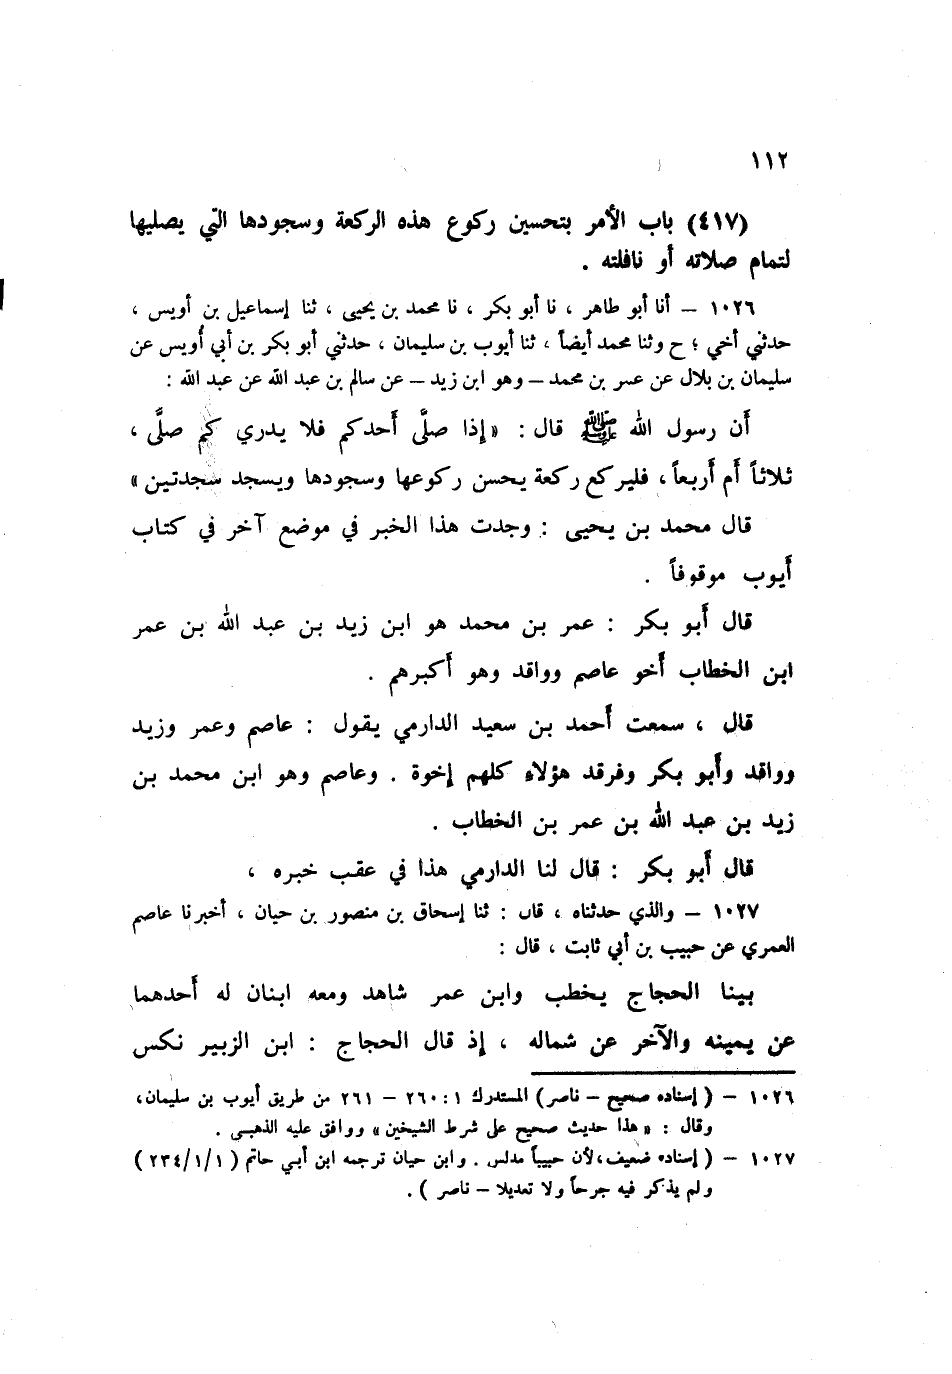 ١١٢
(٤١٧) باب الأمر بتحسين ركوع هذه الركعة وسجودها التي يصليها
لتمام صلاته أو نافلته .
١٠٢٦ – أنا أبو طاهر ، نا أبو بكر ، نا محمد بن يحيى ، ثنا إسماعيل بن أويس ،
حدثني أخي ؛ ح وثنا محمد أيضاً ، ثنا أيوب بن سليمان ، حدثني أبو بكر بن أبي أُويس عن
سليمان بن بلال عن عمر بن محمد – وهو ابن زيد – عن سالم بن عبد الله عن عبد الله :
أَن رسول الله ﷺ قال : «إذا صلَّى أَحدكم فلا يدري كم صلَّى ،
ثلاثاً أَم أَربعاً، فليركع ركعة يحسن ركوعها وسجودها ويسجد سجدتين»
قال محمد بن يحيى : وجدت هذا الخبر في موضع آخر في كتاب
أَيوب موقوفاً .
قال أَبو بكر : عمر بن محمد هو ابن زيد بن عبد الله بن عمر
ابن الخطاب أَخو عاصم وواقد وهو أَكبرهم .
قال ، سمعت أَحمد بن سعيد الدارمي يقول : عاصم وعمر وزيد
وواقد وأَبو بكر وفرقد هؤلاء كلهم إخوة . وعاصم وهو ابن محمد بن
زيد بن عبد الله بن عمر بن الخطاب .
قال أَبو بكر : قال لنا الدارمي هذا في عقب خبره ،
١٠٢٧ – والذي حدثناه ، قال : ثنا إسحاق بن منصور بن حيان ، أخبرنا عاصم
العمري عن حبيب بن أبي ثابت ، قال :
بينا الحجاج يخطب وابن عمر شاهد ومعه ابنان له أَحدهما
عن يمينه والآخر عن شماله ، إذ قال الحجاج : ابن الزبير نكس
١٠٢٦ – (إسناده صحيح – ناصر) المستدرك ١ :٢٦٠ – ٢٦١ من طريق أيوب بن سليمان،
وقال : «هذا حديث صحيح على شرط الشيخين» ووافق عليه الذهبي .
١٠٢٧ – (إسناده ضعيف،لأن حبيباً مدلس . وابن حيان ترجمه ابن أبي حاتم (٢٣٤/١/١)
ولم يذكر فيه جرحاً ولا تعديلا – ناصر ) .